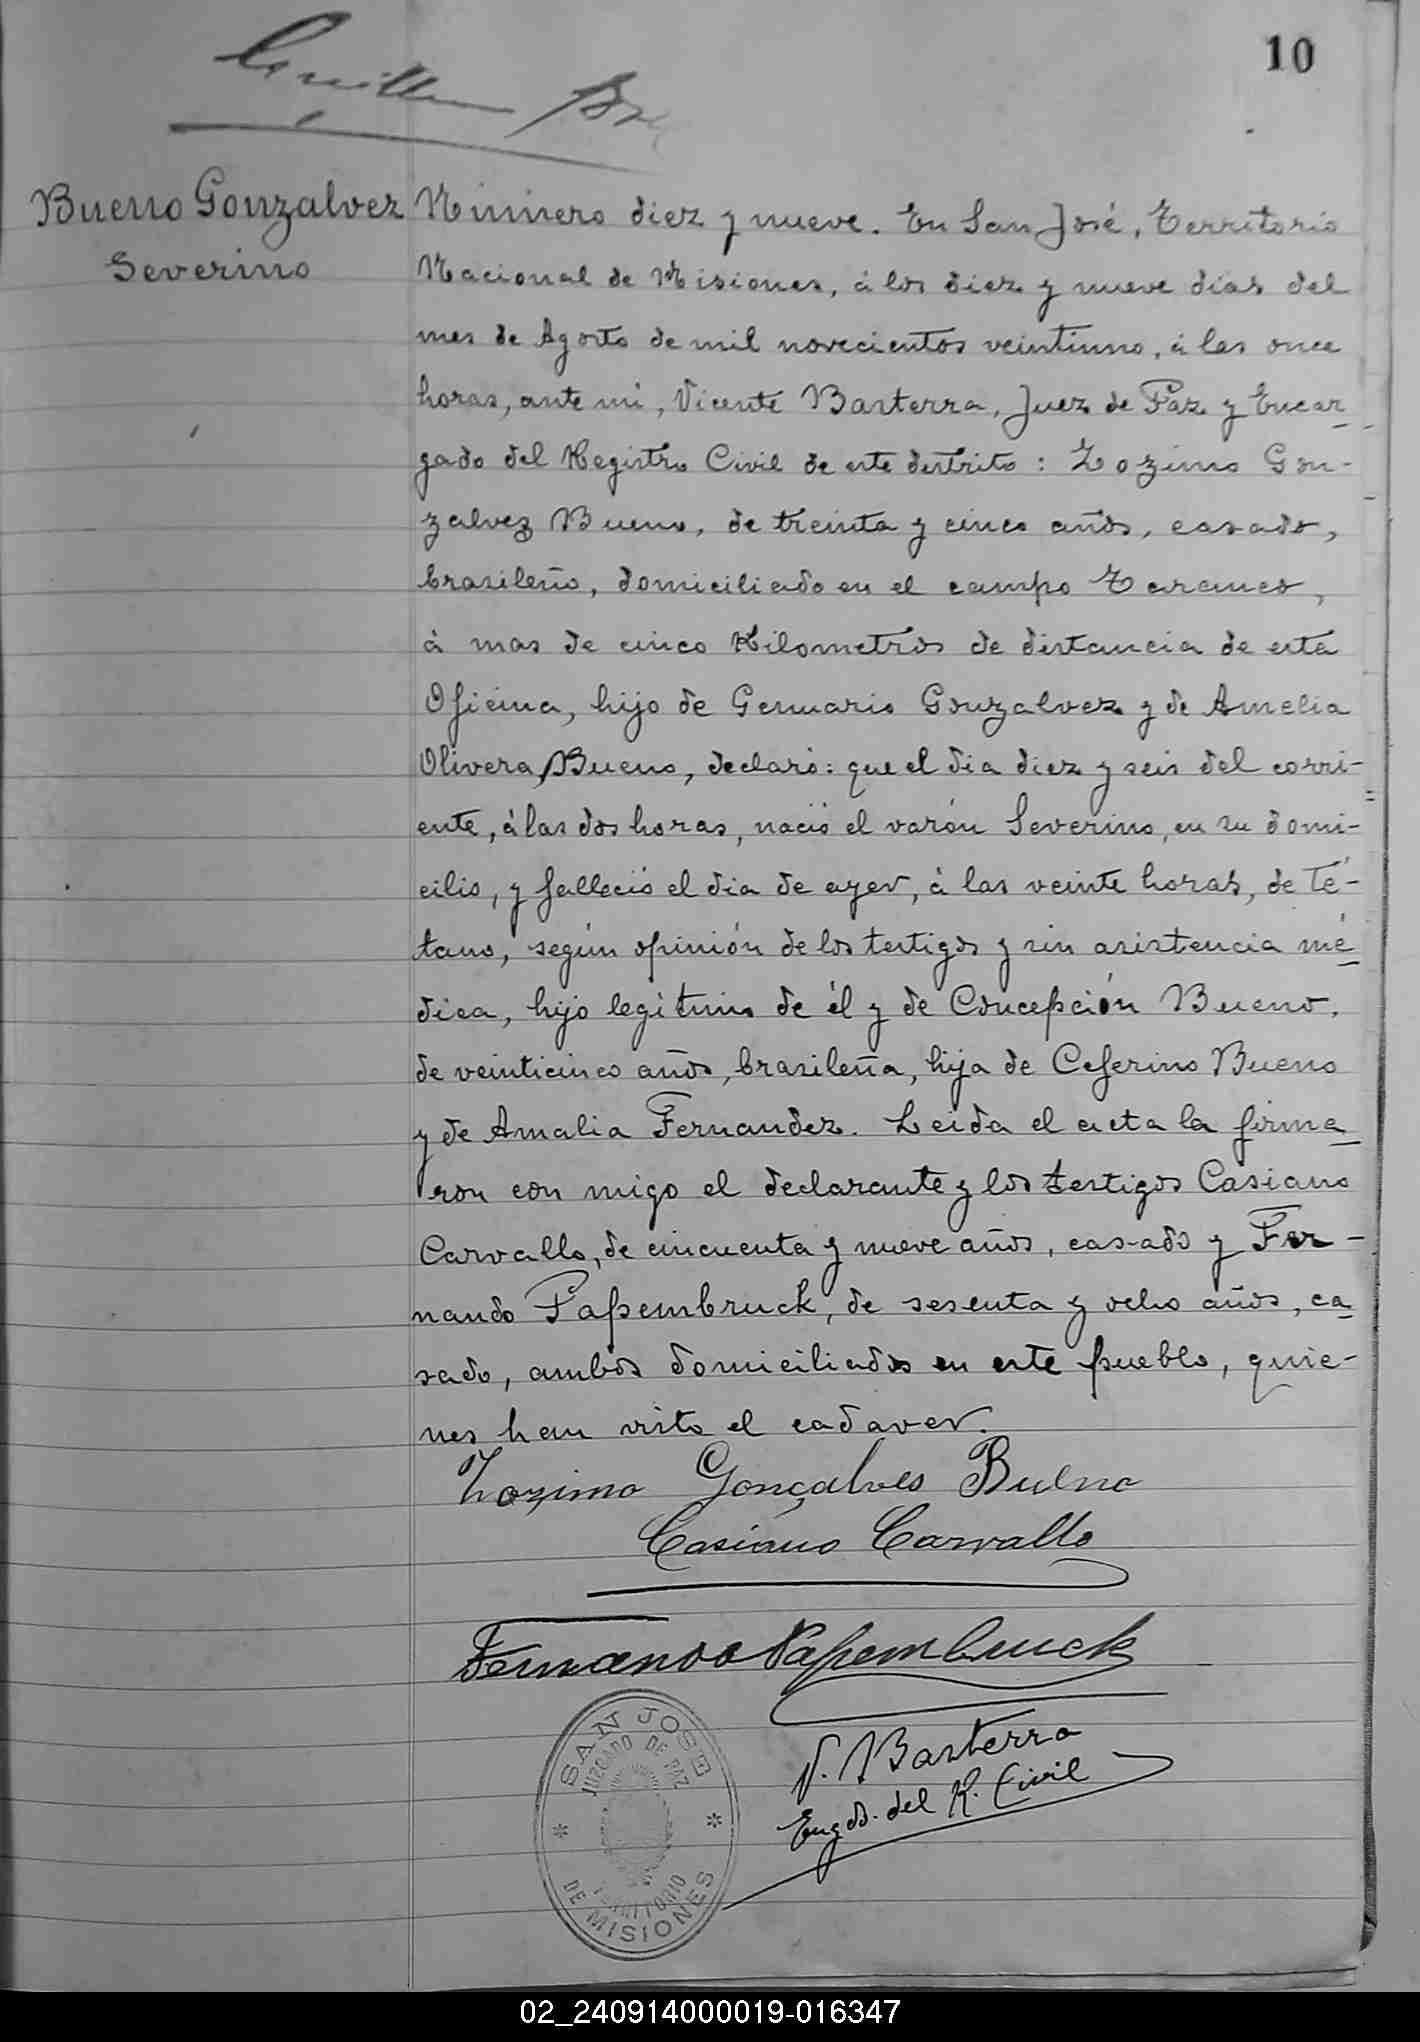 10
Bueno Gonzalvez
Severino
Número diez y nueve. En San José, Territorio
Nacional de Misiones, á los diez y nueve dias del
mes de Agosto de mil novecientos veintiuno, á las once
horas, ante mi, Vicente Basterra, Juez de Paz y Encar-
gado del Registro Civil de este distrito: Zozimo Gon-
zalvez Bueno, de treinta y cinco años, casado,
brasileño, domiciliado en el campo Taranco,
á mas de cinco Kilometros de distancia de esta
Oficina, hijo de Genuario Gonzalvez y de Amelia
Olivera Bueno, declaró: que el dia diez y seis del corri-
ente, á las dos horas, nació el varón Severino, en su domi-
cilio, y falleció el dia de ayer, á las veinte horas, de té-
tano, según opinión de los testigos y sin asistencia mé-
dica, hijo legitimo de él y de Concepción Bueno,
de veinticinco años, brasileña, hija de Ceferino Bueno
y de Amalia Fernandez. Leida el acta la firma-
ron con migo el declarante y los testigos Casiano
Carvallo, de cincuenta y nueve años, casado y Fer-
nando Papembruck, de sesenta y ocho años, ca-
sado, ambos domiciliados en este pueblo, quie-
nes han visto el cadaver.
Zozimo Gonçalves Bueno
Casiano Carvallo
Fernando Papembruck
V. Basterra
Engdo. del R. Civil
SAN JOSE
JUZGADO DE PAZ
TERRITORIO
DE MISIONES
02_240914000019-016347